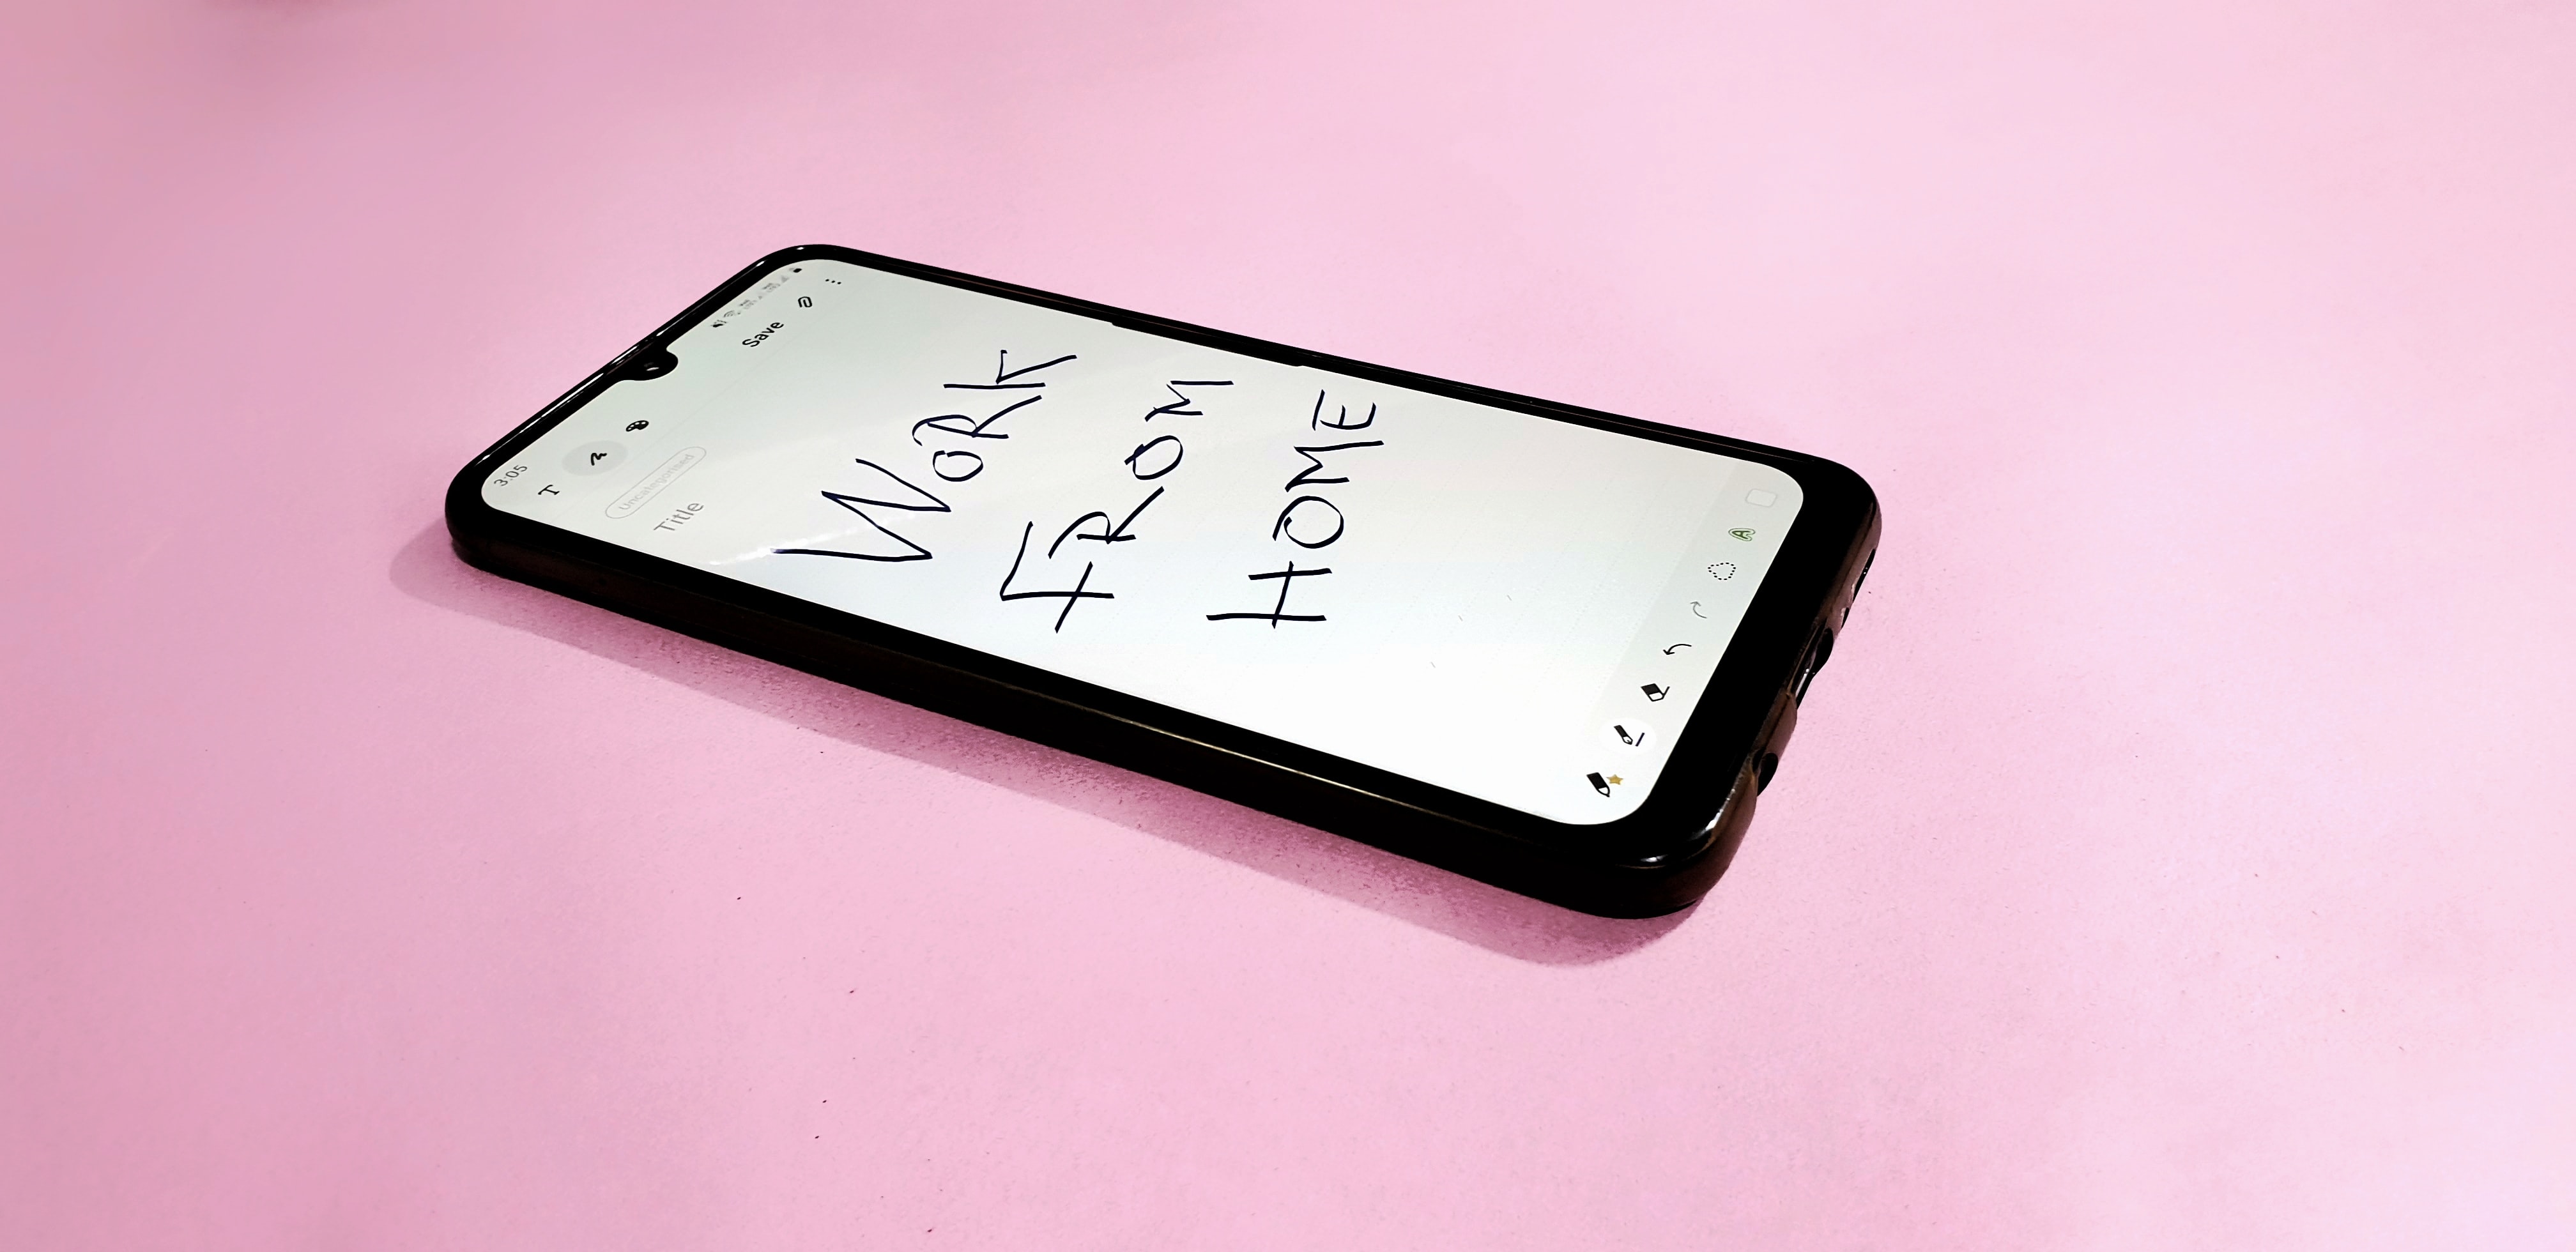 3:05
T
Save
Uncategorised
Title
WORK
FROM
HOME
A